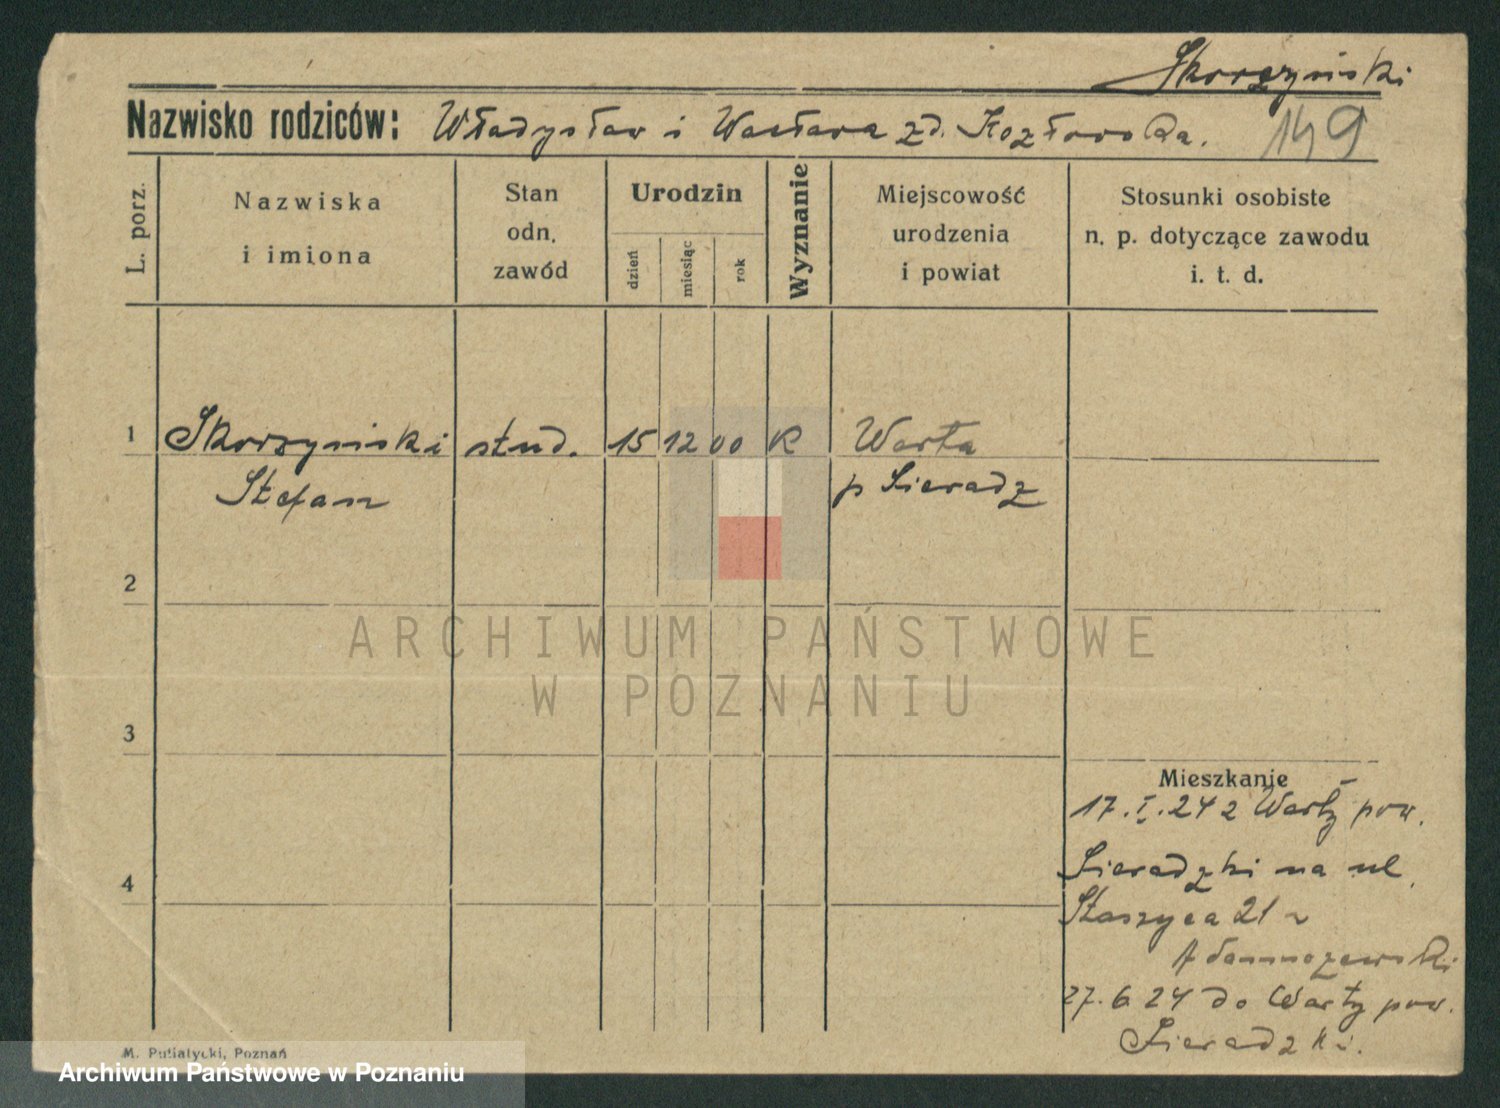 Skorczyński
Nazwisko rodziców: Władysław i Wacława zd. Kozłowska. 149
L. porz.
Nazwiska
i imiona
Stan
odn.
zawód
Urodzin
dzień
miesiąc
rok
Wyznanie
Miejscowość
urodzenia
i powiat
Stosunki osobiste
n. p. dotyczące zawodu
i. t. d.
1 Skorzyński stud. 15 12 00 K Warta
Stefan p Sieradz
2
3
4
Mieszkanie
17.I.24 z Warty pow.
Sieradzki na ul.
Staszyca 21
27.6 24 do Warty pow.
Sieradzki.
M. Putiatycki, Poznań
ARCHIWUM PAŃSTWOWE
W POZNANIU
Archiwum Państwowe w Poznaniu